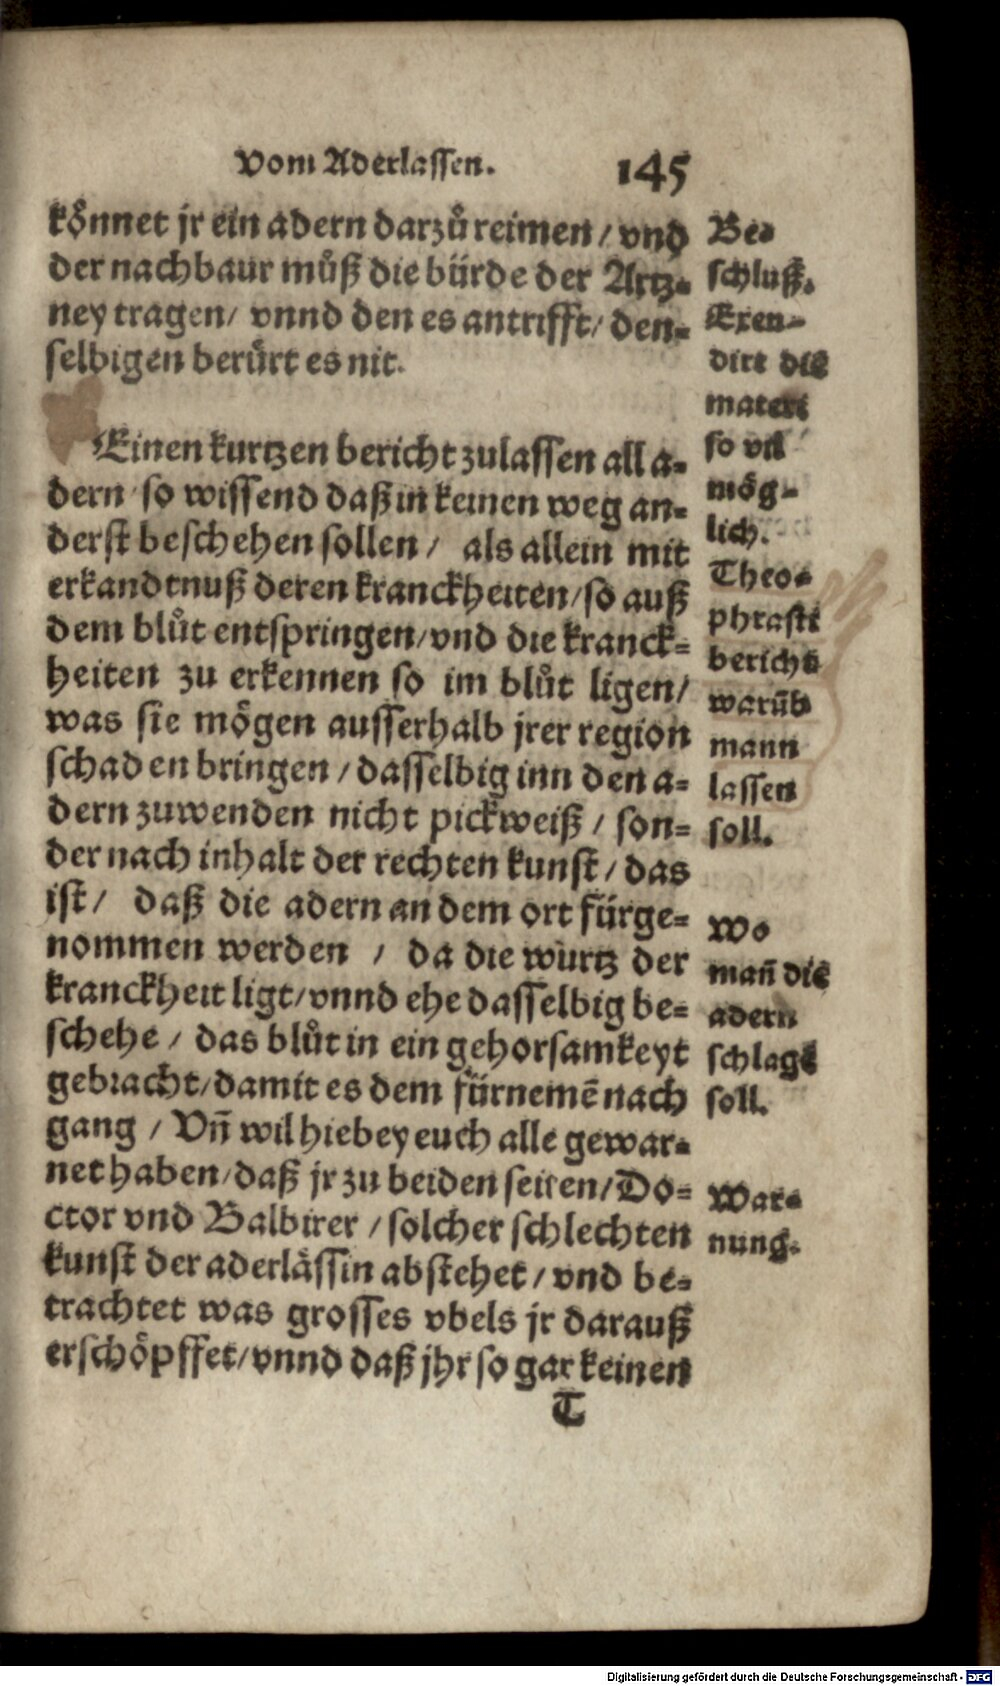 Vom Aderlassen. 145
kőnnet jr ein adern darzů reimen / vnd
der nachbaur můß die bürde der Artz-
ney tragen / vnnd den es antrifft / den-
selbigen berürt es nit.
Einen kurtzen bericht zulassen all a-
dern so wissend daß in keinen weg an-
derst beschehen sollen / als allein mit
erkandtnuß deren kranckheiten / so auß
dem blůt entspringen / vnd die kranck-
heiten zu erkennen so im blůt ligen /
was sie mögen ausserhalb jrer region
schaden bringen / dasselbig inn den a-
dern zuwenden nicht pickweiß / son-
der nach inhalt der rechten kunst / das
ist / daß die adern an dem ort fürge-
nommen werden / da die wurtz der
kranckheit ligt / vnnd ehe dasselbig be-
schehe / das blůt in ein gehorsamkeyt
gebracht / damit es dem fürnemē nach
gang / Vn̄ wil hiebey euch alle gewar-
net haben / daß jr zu beiden seiten / Do-
ctor vnd Balbirer / solcher schlechten
kunst der aderlässin abstehet / vnd be-
trachtet was grosses vbels jr darauß
erschöpffet / vnnd daß jhr so gar keinen
T
Be-
schluß.
Exen-
dirt die
materi
so vil
mög-
lich.
Theo-
phrasti
bericht
warūb
mann
lassen
soll.
Wo
man̄ die
adern
schlagē
soll.
War-
nung.
Digitalisierung gefördert durch die Deutsche Forschungsgemeinschaft - DFG